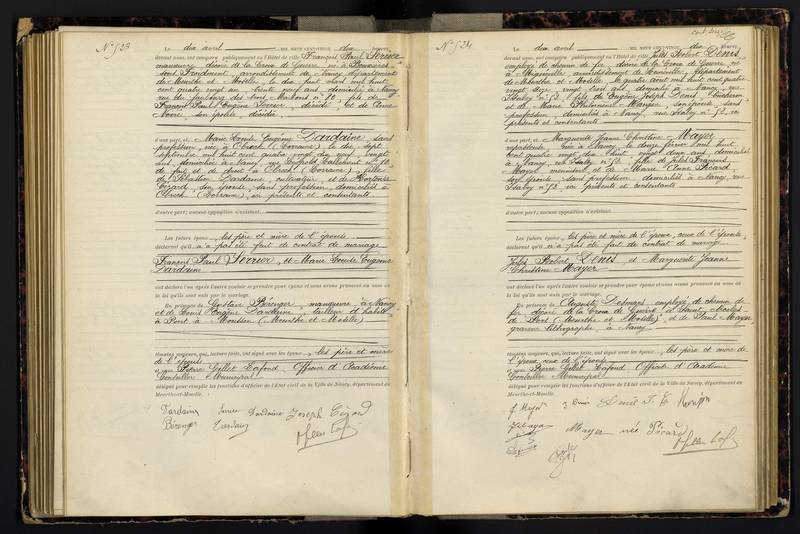 N° 523
Le dix avril MIL NEUF CENT VINGT, dix heures,
devant nous, ont comparu publiquement en l'Hôtel de ville François Paul Serrier
manœuvre, décoré de la Croix de Guerre, né à
sous Froidmont, arrondissement de Nancy département
de Meurthe et Moselle, le dix huit mil huit
cent quatre vingt ans, domicilié à Nancy
rue du faubourg des Trois-Maisons n° 80, fils de
François Paul Eugène Serrier, décédé, et de Anne
son épouse, décédée.
d'une part, et Marie Louise Eugénie Dardaine, sans
profession, née à Obreck (Lorraine) le dix sept
septembre mil huit cent quatre vingt dix neuf, vingt
ans, domiciliée à Nancy, rue n° 10
de fait et de droit à Obreck (Lorraine), fille
de Dardaine, cultivateur, et de Hortense
Gérard, son épouse, sans profession, domiciliés à
Obreck (Lorraine), ici présents et consentants
d'autre part; aucune opposition n'existant.
Les futurs époux, les père et mère de l'épouse
déclarent qu'il n'a pas été fait de contrat de mariage
François Paul Serrier, et Marie Louise Eugénie
Dardaine
ont déclaré l'un après l'autre vouloir se prendre pour époux et nous avons prononcé au nom de
la loi qu'ils sont unis par le mariage.
En présence de Gustave Bérenger, manœuvre, à Nancy
et de Louis Eugène Dardaine, tailleur d'habits
à Pont à Mousson (Meurthe et Moselle)
témoins majeurs, qui, lecture faite, ont signé avec les époux, les père et mère
de l'épouse
et nous Pierre Gillet Lafond, Officier d'Académie
Conseiller Municipal
délégué pour remplir les fonctions d'officier de l'Etat civil de la Ville de Nancy, département de
Meurthe-et-Moselle.
Dardaine Serrier Dardaine Joseph Gérard
Bérenger Dardaine
N° 524
Le dix avril MIL NEUF CENT VINGT, dix heures,
devant nous, ont comparu publiquement en l'Hôtel de ville Jules Robert Denis
employé de chemin de fer, décoré de la Croix de Guerre, né
à arrondissement de département
de Meurthe et Moselle, le quatre août mil huit cent quatre
vingt seize, vingt trois ans, domicilié à Nancy, rue
n° 52, fils de Eugène Joseph Denis,
et de Marie Mayer, son épouse, sans
profession, domiciliés à Nancy, rue n° 52, ici
présents et consentants
d'une part, et Marguerite Jeanne Christine Mayer
repasseuse, née à Nancy, le douze février mil huit
cent quatre vingt dix huit, vingt deux ans, domiciliée
à Nancy, rue n° 52, fille de Jules François
Mayer, menuisier, et de Marie Anne Picard,
son épouse, sans profession, domiciliés à Nancy, rue
n° 52, ici présents et consentants
d'autre part; aucune opposition n'existant.
Les futurs époux, les père et mère de l'époux, ceux de l'épouse,
déclarent qu'il n'a pas été fait de contrat de mariage
Jules Robert Denis, et Marguerite Jeanne
Christine Mayer
ont déclaré l'un après l'autre vouloir se prendre pour époux et nous avons prononcé au nom de
la loi qu'ils sont unis par le mariage.
En présence de Auguste employé de chemin de
fer, décoré de la Croix de Guerre, à Saint Nicolas
de Port (Meurthe et Moselle) et de Paul Mayer,
graveur lithographe, à Nancy
témoins majeurs, qui, lecture faite, ont signé avec les époux, les père et mère de
l'époux, ceux de l'épouse
et nous Pierre Gillet Lafond, Officier d'Académie
Conseiller Municipal
délégué pour remplir les fonctions d'officier de l'Etat civil de la Ville de Nancy, département de
Meurthe-et-Moselle.
J Mayer Denis
Mayer née Picard